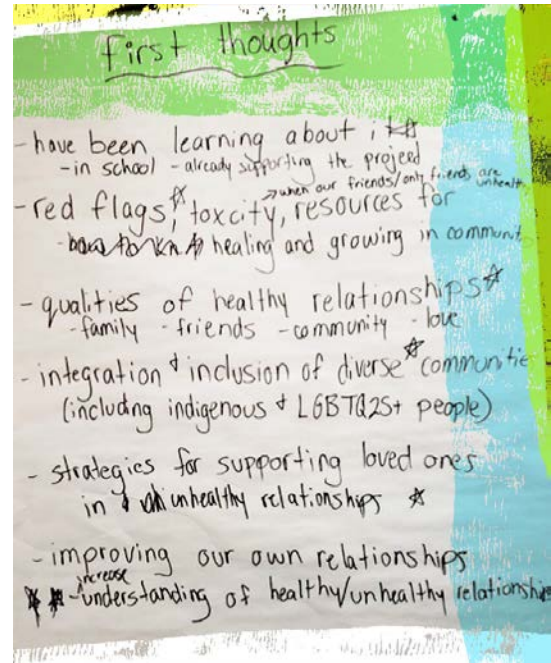 first thoughts
- have been learning about it
- in school - already supporting the project
→ when our friends/only friends are unhealt
- red flags, toxcity, resources for
- healing and growing in communit
- qualities of healthy relationships
- family - friends - community - love
- integration & inclusion of diverse communitie
(including indigenous & LGBTQ2S+ people)
- strategies for supporting loved ones
in unhealthy relationships
- improving our own relationships
increase
- understanding of healthy/unhealthy relationships